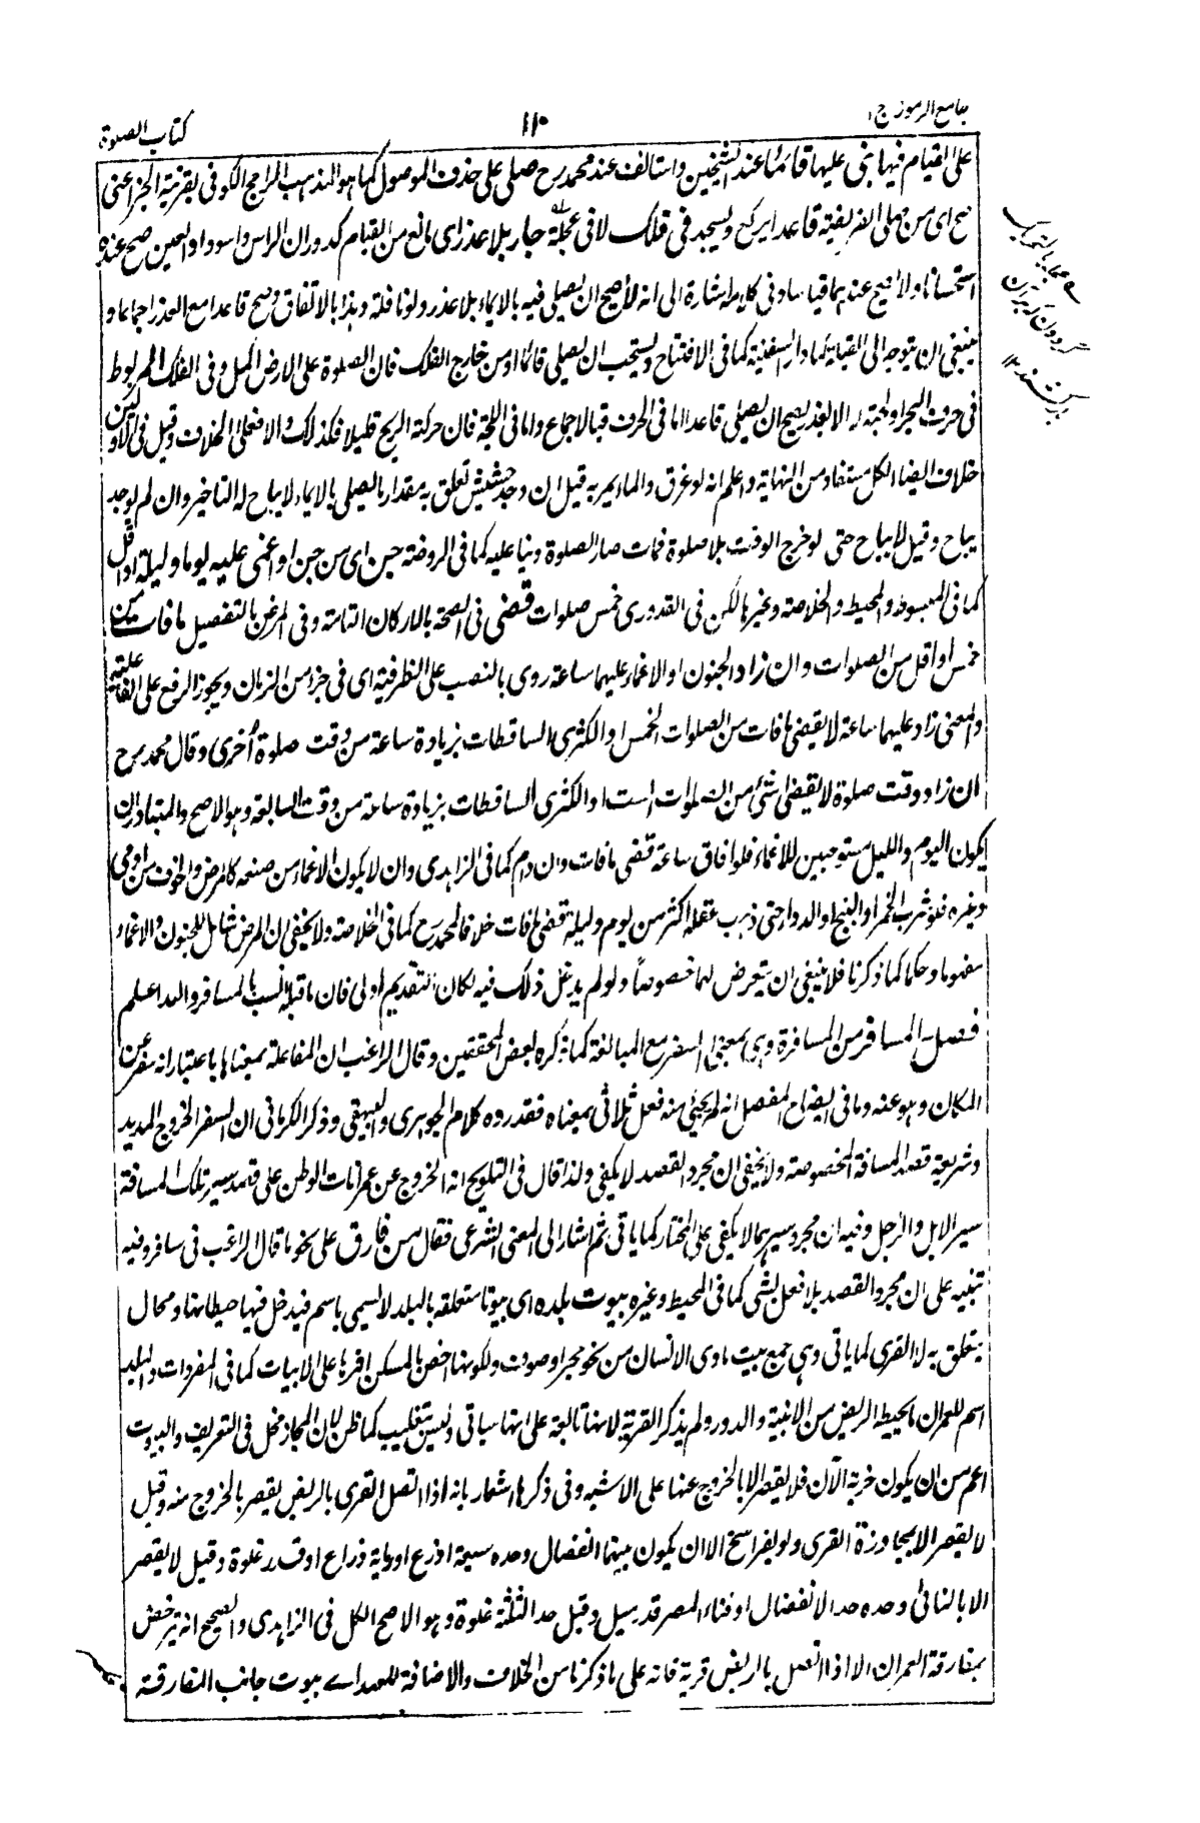 جامع الرموز ج ١
١١٠
كتاب الصلوة
على القيام فيها بنى عليها قائما عند الشيخين واستالف عند محمد رح صلى على حذف الموصول كما هو المذهب الراجح الكوفى بقرينة الجزاء عنى
صح اى من صلى الفريضة قاعدا يركع ويسجد فى فلك لا فى عجلة جار بلا عذر اى مانع من القيام كدوران الراس واسوداد العين صح عنده
استحسانا ولا يصح عندهما قياسا وفى كلامه اشارة الى انه لا يصح ان يصلى فيه بالايماء بلا عذر ولو نافلة وهذا بالاتفاق وصح قاعدا مع العذر اجماعا و
ينبغى ان يتوجه الى القبلة كما دار السفينة كما فى الافتتاح ويستحب ان يصلى قائما او من خارج الفلك فان الصلوة على الارض اكمل وفى الفلك المربوط
فى حرف البحر او لجته لا الا بعذر يصح ان يصلى قاعدا اما فى الحرف فبالاجماع واما فى اللجة فان حركته الريح قليلا فكذلك والا فعلى الخلاف وقيل فى الاولين
خلاف ايضا الكل مستفاد من النهاية واعلم انه لو غرق والماء يمر به قيل ان وجد حشيش تعلق به مقدار ما يصلى بالايماء لا يباح له التاخير وان لم يوجد
يباح وقيل لا يباح حتى لو خرج الوقت بلا صلوة فمات صار الصلوة دينا عليه كما فى الروضة جن اى من جن او اغمى عليه يوما وليلة او اقل
كما فى المبسوط والمحيط والخلاصة وغيرها لكن فى القدورى خمس صلوات قضى فى الصحة بالاركان التامة وفى المرض بالتفصيل ما فات من
خمس او اقل من الصلوات وان زاد الجنون او الاغماء عليهما ساعة روى بالنصب على الظرفية اى فى جزء من الزمان ويجوز الرفع على الفاعلية
والمعنى زاد عليهما ساعة لا يقضى ما فات من الصلوات الخمس او الكثرى الساقطات بزيادة ساعة من وقت صلوة اخرى وقال محمد رح
ان زاد وقت صلوة لا يقضى شئ من الصلوات الست او الكثرى الساقطات بزيادة ساعة من وقت السابعة وهو الاصح والمتبادر ان
يكون اليوم والليل مستوعبين للاغماء فلو افاق ساعة قضى ما فات وان دام كما فى الزاهدى وان لا يكون الاغماء من صنعه كالمرض والخوف من ادمى
وغيره فلو شرب الخمر او البنج او الدواء حتى ذهب عقله اكثر من يوم وليلة قضى ما فات خلافا لمحمد رح كما فى الخلاصة ولا يخفى ان المرض شامل للجنون والاغماء
مفهوما وحكما كما ذكرنا فلا ينبغى ان يتعرض لهما خصوصا ولو لم يدخل ذلك فيه لكان التقديم اولى فان ما قبله انسب بالمسافر والله اعلم
فصل المسافر من المسافرة وهى بمعنى السفر مع المبالغة كما ذكره بعض المحققين وقال الراغب ان المفاعلة بمعناها باعتبار انه سفر عن
المكان وهو عنه وما فى ايضاح المفصل انه لم يجئ منه فعل ثلاثى بمعناه فقد رده كلام الجوهرى والبيهقى وذكر الكرمانى ان السفر الخروج المديد
وشريعة قصد المسافة المخصوصة ولا يخفى ان مجرد القصد لا يكفى ولذا قال فى التلويح انه الخروج عن عمرانات الوطن على قصد سير تلك المسافة
سير الابل والرجل وفيه ان مجرد سيرهما لا يكفى على المختار كما ياتى ثم اشار الى المعنى الشرعى فقال من فارق على نحو ما قال الراغب فى سافر وفيه
تنبيه على ان مجرد القصد بلا فعل ليس بشئ كما فى المحيط وغيره بيوت بلده اى بيوتا متعلقة بالبلد لا يسمى باسم فيدخل فيها حيطانها ومحال
يتعلق به لا القرى كما ياتى وهى جمع بيت ماوى الانسان من نحو حجر او صوف ولكونها اخص بالمسكن اثرها على الابيات كما فى المفردات والبلد
اسم للعمران المحيط الربض من الابنية والدور ولم يذكر القرية لانها تابعة على انها سياتى وليس بتغليب كما ظن لان المجاز مخل فى التعريف والبيوت
اعم من ان يكون خربة الآن فلا يقصر الا بالخروج عنها على الاشبه وفى ذكرها اشعار بانه اذا اتصل القرى بالربض يقصر بالخروج منه وقيل
لا يقصر الا بمجاوزة القرى ولو بفراسخ الا ان يكون بينهما انفصال وحده سبعة اذرع او مائة ذراع او قدر غلوة وقيل لا يقصر
الا بالنائى وحده حد الانفصال او فناء المصر قدر ميل وقيل حد الثلثة غلوة وهو الاصح الكل فى الزاهدى والصحيح انه يترخص
بمفارقة العمران الا اذا اتصل بالربض قرية فانه على ما ذكرنا من الخلاف والاضافة للعهد اے بيوت جانب المفارقة